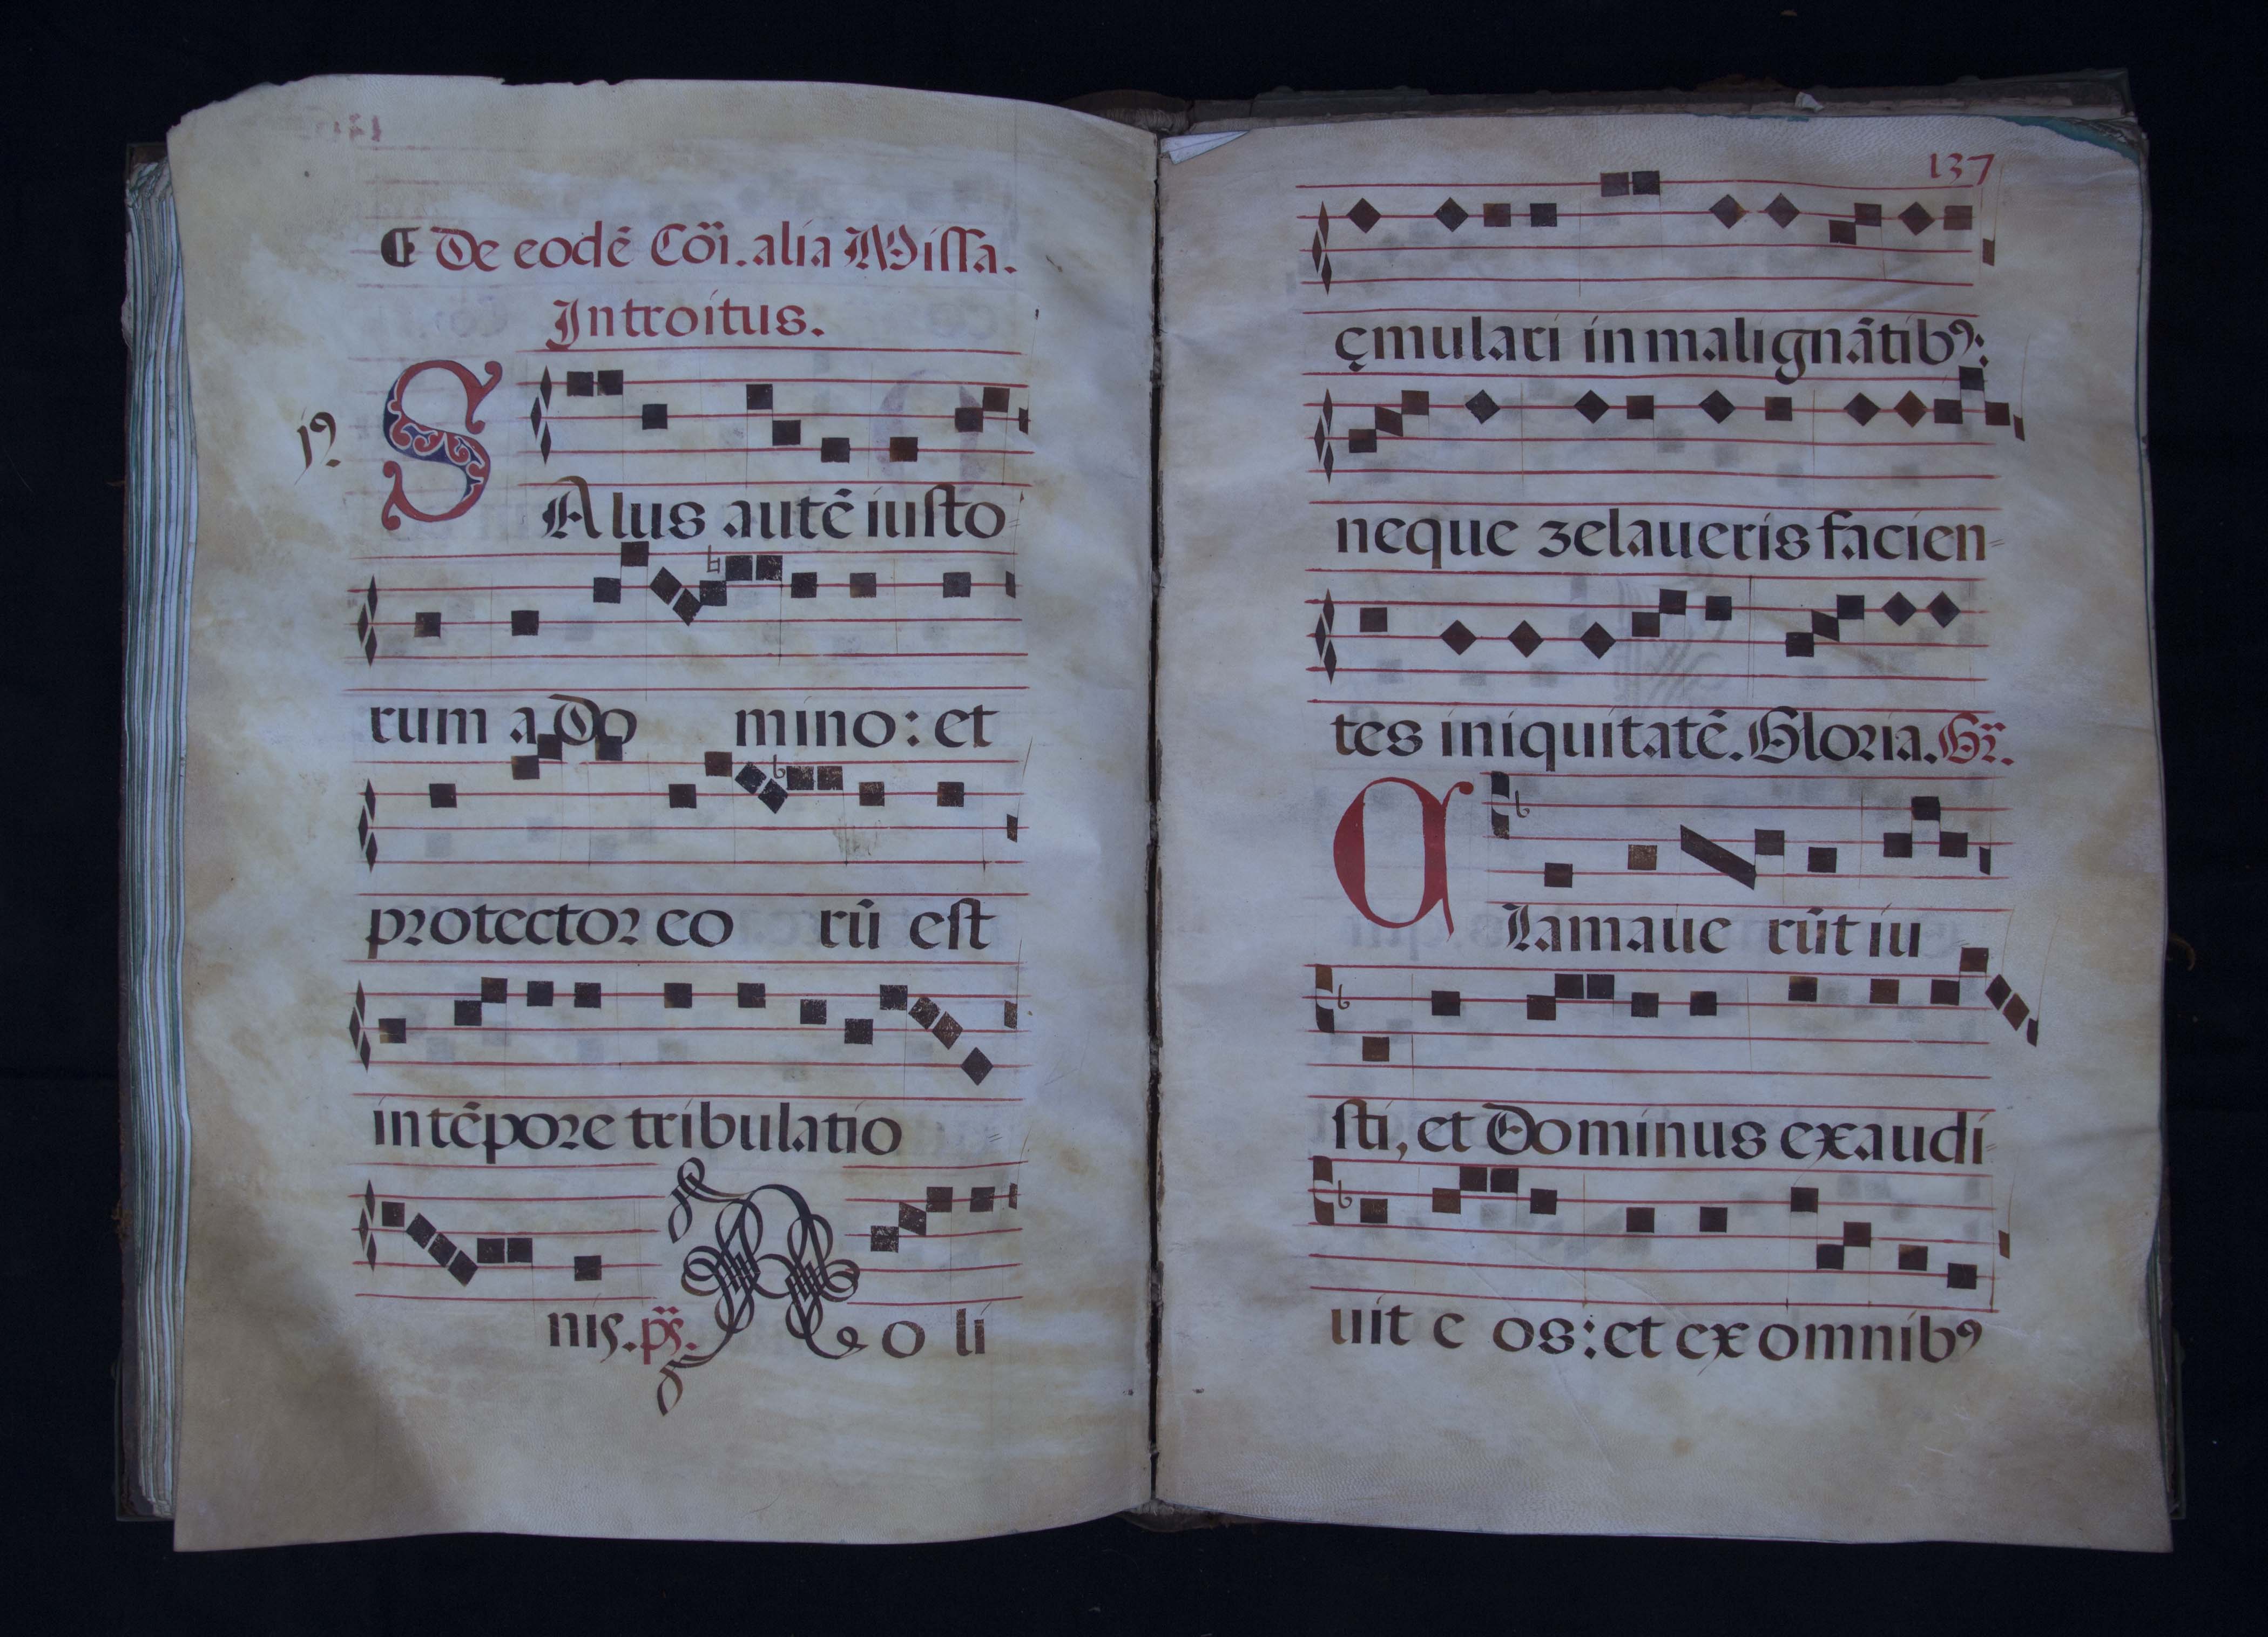 De eodē Cōi. alia Missa.
Introitus.
SAlus autē iusto=
rum a Do mino: et
protector eo rū est
in tēpore tribulatio=
nis. ps. No li
137
ęmulari in malignātibꝰ:
neque zelaueris facien=
tes iniquitatē. Gloria. Gr.
Clamaue rūt iu
sti, et Dominus exaudi=
uit e os: et ex omnibꝰ